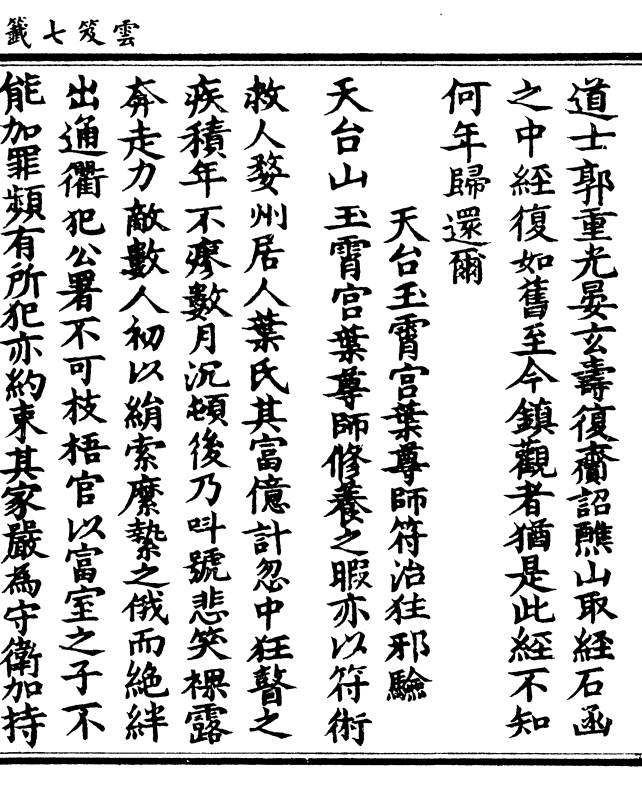 雲笈七籤
道士郭重光晏玄壽復齎詔醮山取經石函
之中經復如舊至今鎮觀者猶是此經不知
何年歸還爾
天台玉霄宮葉尊師符治狂邪驗
天台山玉霄宮葉尊師修養之暇亦以符術
救人婺州居人葉氏其富億計忽中狂瞽之
疾積年不瘳數月沉頓後乃叫號悲笑裸露
奔走力敵數人初以絹索縻縶之俄而絶絆
出通衢犯公署不可枝梧官以富室之子不
能加罪頻有所犯亦約束其家嚴為守衛加持